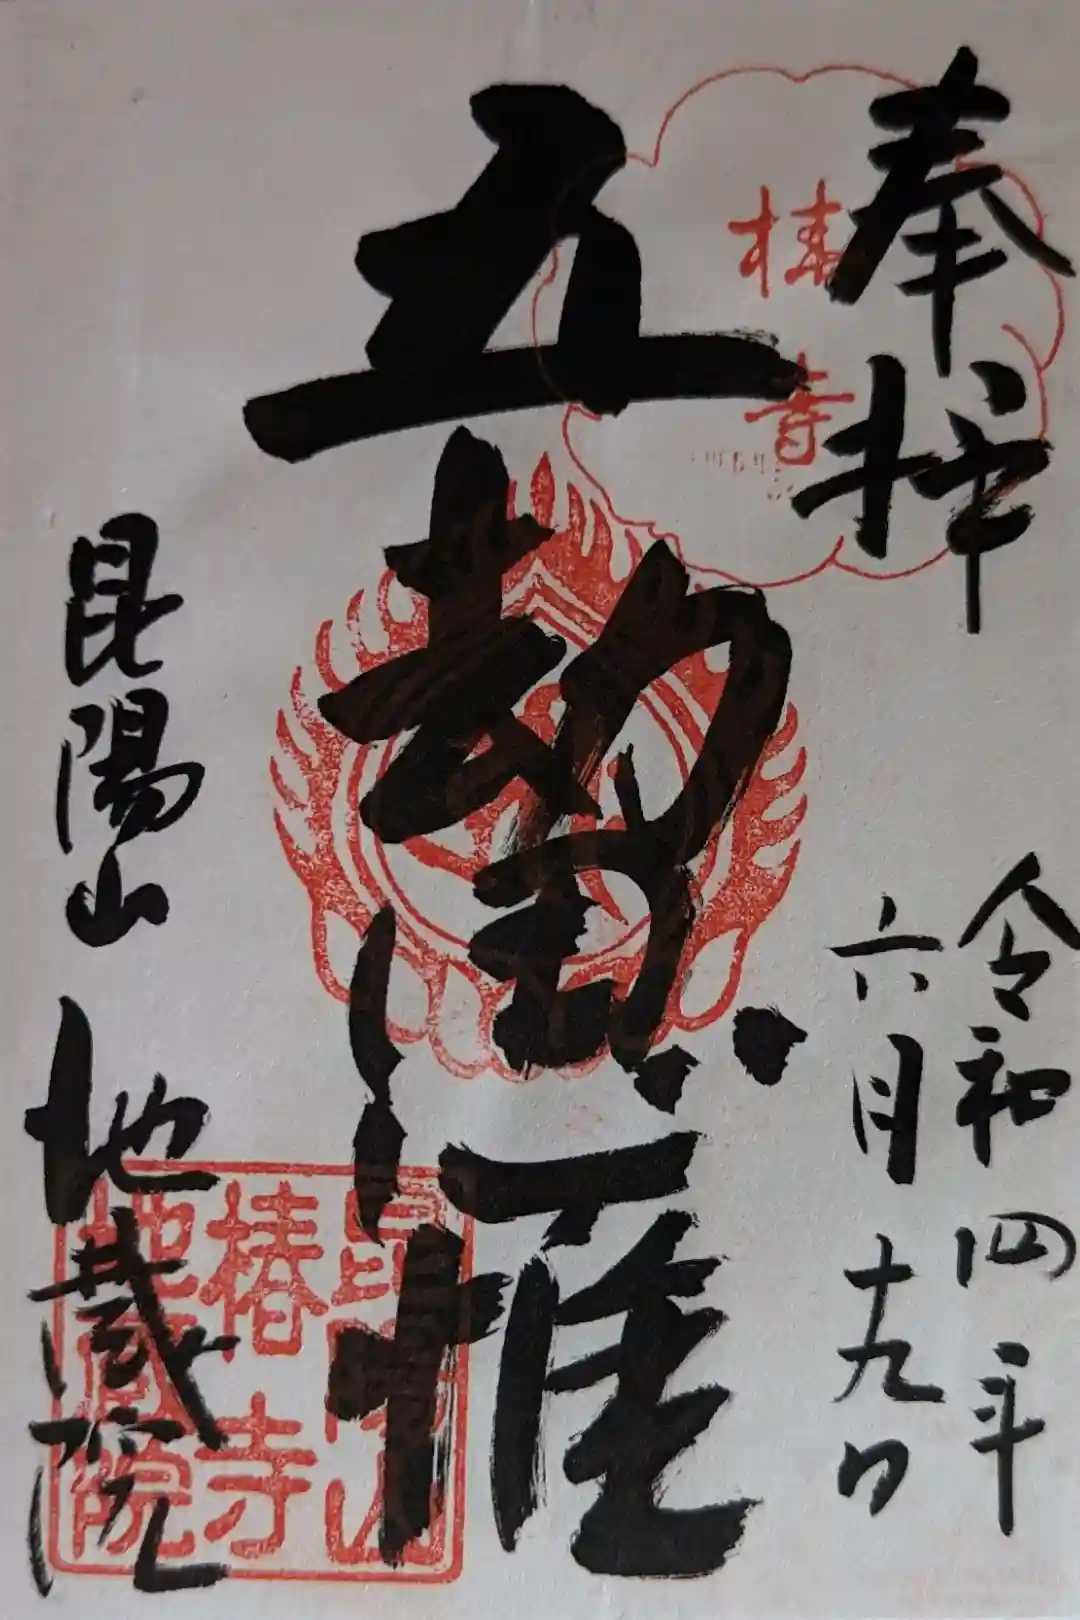 奉拝
令和四年
六月十九日
椿寺
五劫思惟
昆陽山 地蔵院
昆陽山
椿寺
地蔵院